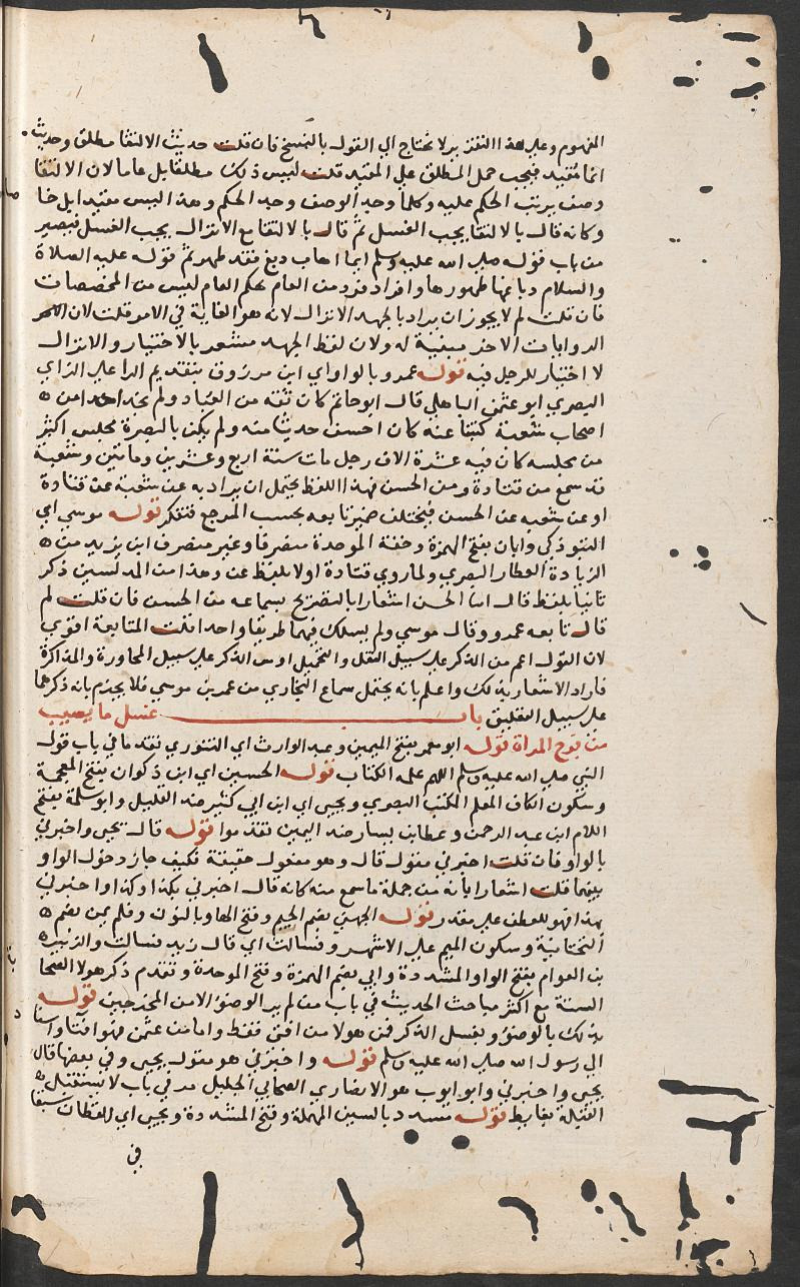 المفهوم وعلى هذا التقدير لا يحتاج الى القول بالنسخ فان قلت حديث الالتقا مطلق وحديث
انما مقيد فيجب حمل المطلق على المقيد قلت ليس ذلك مطلقا بل عاما لان الالتقا
وصف يرتب الحكم عليه وكلما وجد الوصف وجد الحكم وهذا ليس مقيدا بل خا
وكانه قال بالالتقا يجب الغسل ثم قال بالالتقا مع الانزال يجب الغسل فيصير
من باب قوله صلى الله عليه وسلم ايما اهاب دبغ فقد طهر ثم قوله عليه الصلاة
والسلام دباغها طهورها وافراد فرد من العام بحكم العام ليس من المخصصات
فان قلت لم لا يجوز ان يراد بالجهد الانزال لانه هو الغاية في الامر قلت لان
الروايات الاخر مبينة له ولان لفظ الجهد مشعر بالاختيار والانزال
لا اختيار للرجل فيه قوله عمرو بالواو اي ابن مرزوق بتقديم الراء على الزاي
البصري ابو عثمن الباهلي قال ابو حاتم كان ثقه من العباد ولم نجد احدا من
اصحاب شعبة كتبنا عنه كان احسن حديثا منه ولم يكن بالبصرة مجلس اكثر
من مجلسه كان فيه عشرة الاف رجل مات سنة اربع وعشرين ومائتين وشعبة
قد سمع من قتادة ومن الحسن فهذا اللفظ يحتمل ان يراد به عن شعبة عن قتادة
او عن شعبه عن الحسن فيختلف ضميرنا بعه بحسب المرجع فتفكر قوله موسى اي
التبوذكي وابان بفتح الهمزة وخفة الموحدة منصرفا وغير منصرف ابن يزيد من
الزيادة العطار البصري ولما روي قتادة اولا بلفظ عن وهذا من المدلسين ذكر
ثانيا بلفظ قال انا الحسن اشعارا بالتصريح بسماعه من الحسن فان قلت لم
قال تابعه عمرو وقال موسى ولم يسلك فيهما طريقا واحدا قلت المتابعة اقوي
لان القول اعم من الذكر على سبيل النقل والتحميل او من الذكر على سبيل المحاورة والمذاكرة
فاراد الاشعار بذلك واعلم بانه يحتمل سماع البخاري من عمرو بن موسى فلا يجزم بانه ذكرهما
على سبيل التعليق باب غسل ما يصيب
من فرج المراة قوله ابو معمر بفتح الميمين وعبد الوارث اي التنوري تقدما في باب قول
النبي صلى الله عليه وسلم اللهم علمه الكتاب قوله الحسين اي ابن ذكوان بفتح المعجمة
وسكون الكاف المعلم المكتب البصري ويحيى اي ابن ابي كثير ضد القليل وابو سلمة بفتح
اللام ابن عبد الرحمن وعطا بن يسار ضد اليمين تقدموا قوله قال يحيى واخبرني
بالواو فان قلت اخبرني مقول قال وهو مفعول حقيقة فكيف جاز دخول الواو
بينهما قلت اشعارا بانه من جملة ما سمع منه كانه قال اخبرني بكذا وكذا واخبرني
بهذا فهو للعطف على مقدر قوله الجهني بضم الجيم وفتح الها وبالنون وقلم يمن بضم
التحتانية وسكون الميم على الاشهر وفسالت اي قال زيد فسالت والزبير
بن العوام بفتح الواو المشددة وابي بضم الهمزة وفتح الموحدة وتقدم ذكر هولا الصحا
الستة مع اكثر مباحث الحديث في باب من لم ير الوضوء الا من المخرجين قوله
بذلك بالوضو وبغسل الذكر فمن هولا من افتى فقط واما من عثمن فهو افتا واسنا
الى رسول الله صلى الله عليه وسلم قوله واخبرني هو مقول يحيى وفي بعضها قال
يحيى واخبرني وابو ايوب هو الانصاري الصحابي الجليل مر في باب لا تستقبل
القبلة بغايط قوله مسدد بالسين المهملة وفتح المشددة ويحيى اي القطان سبقا
في